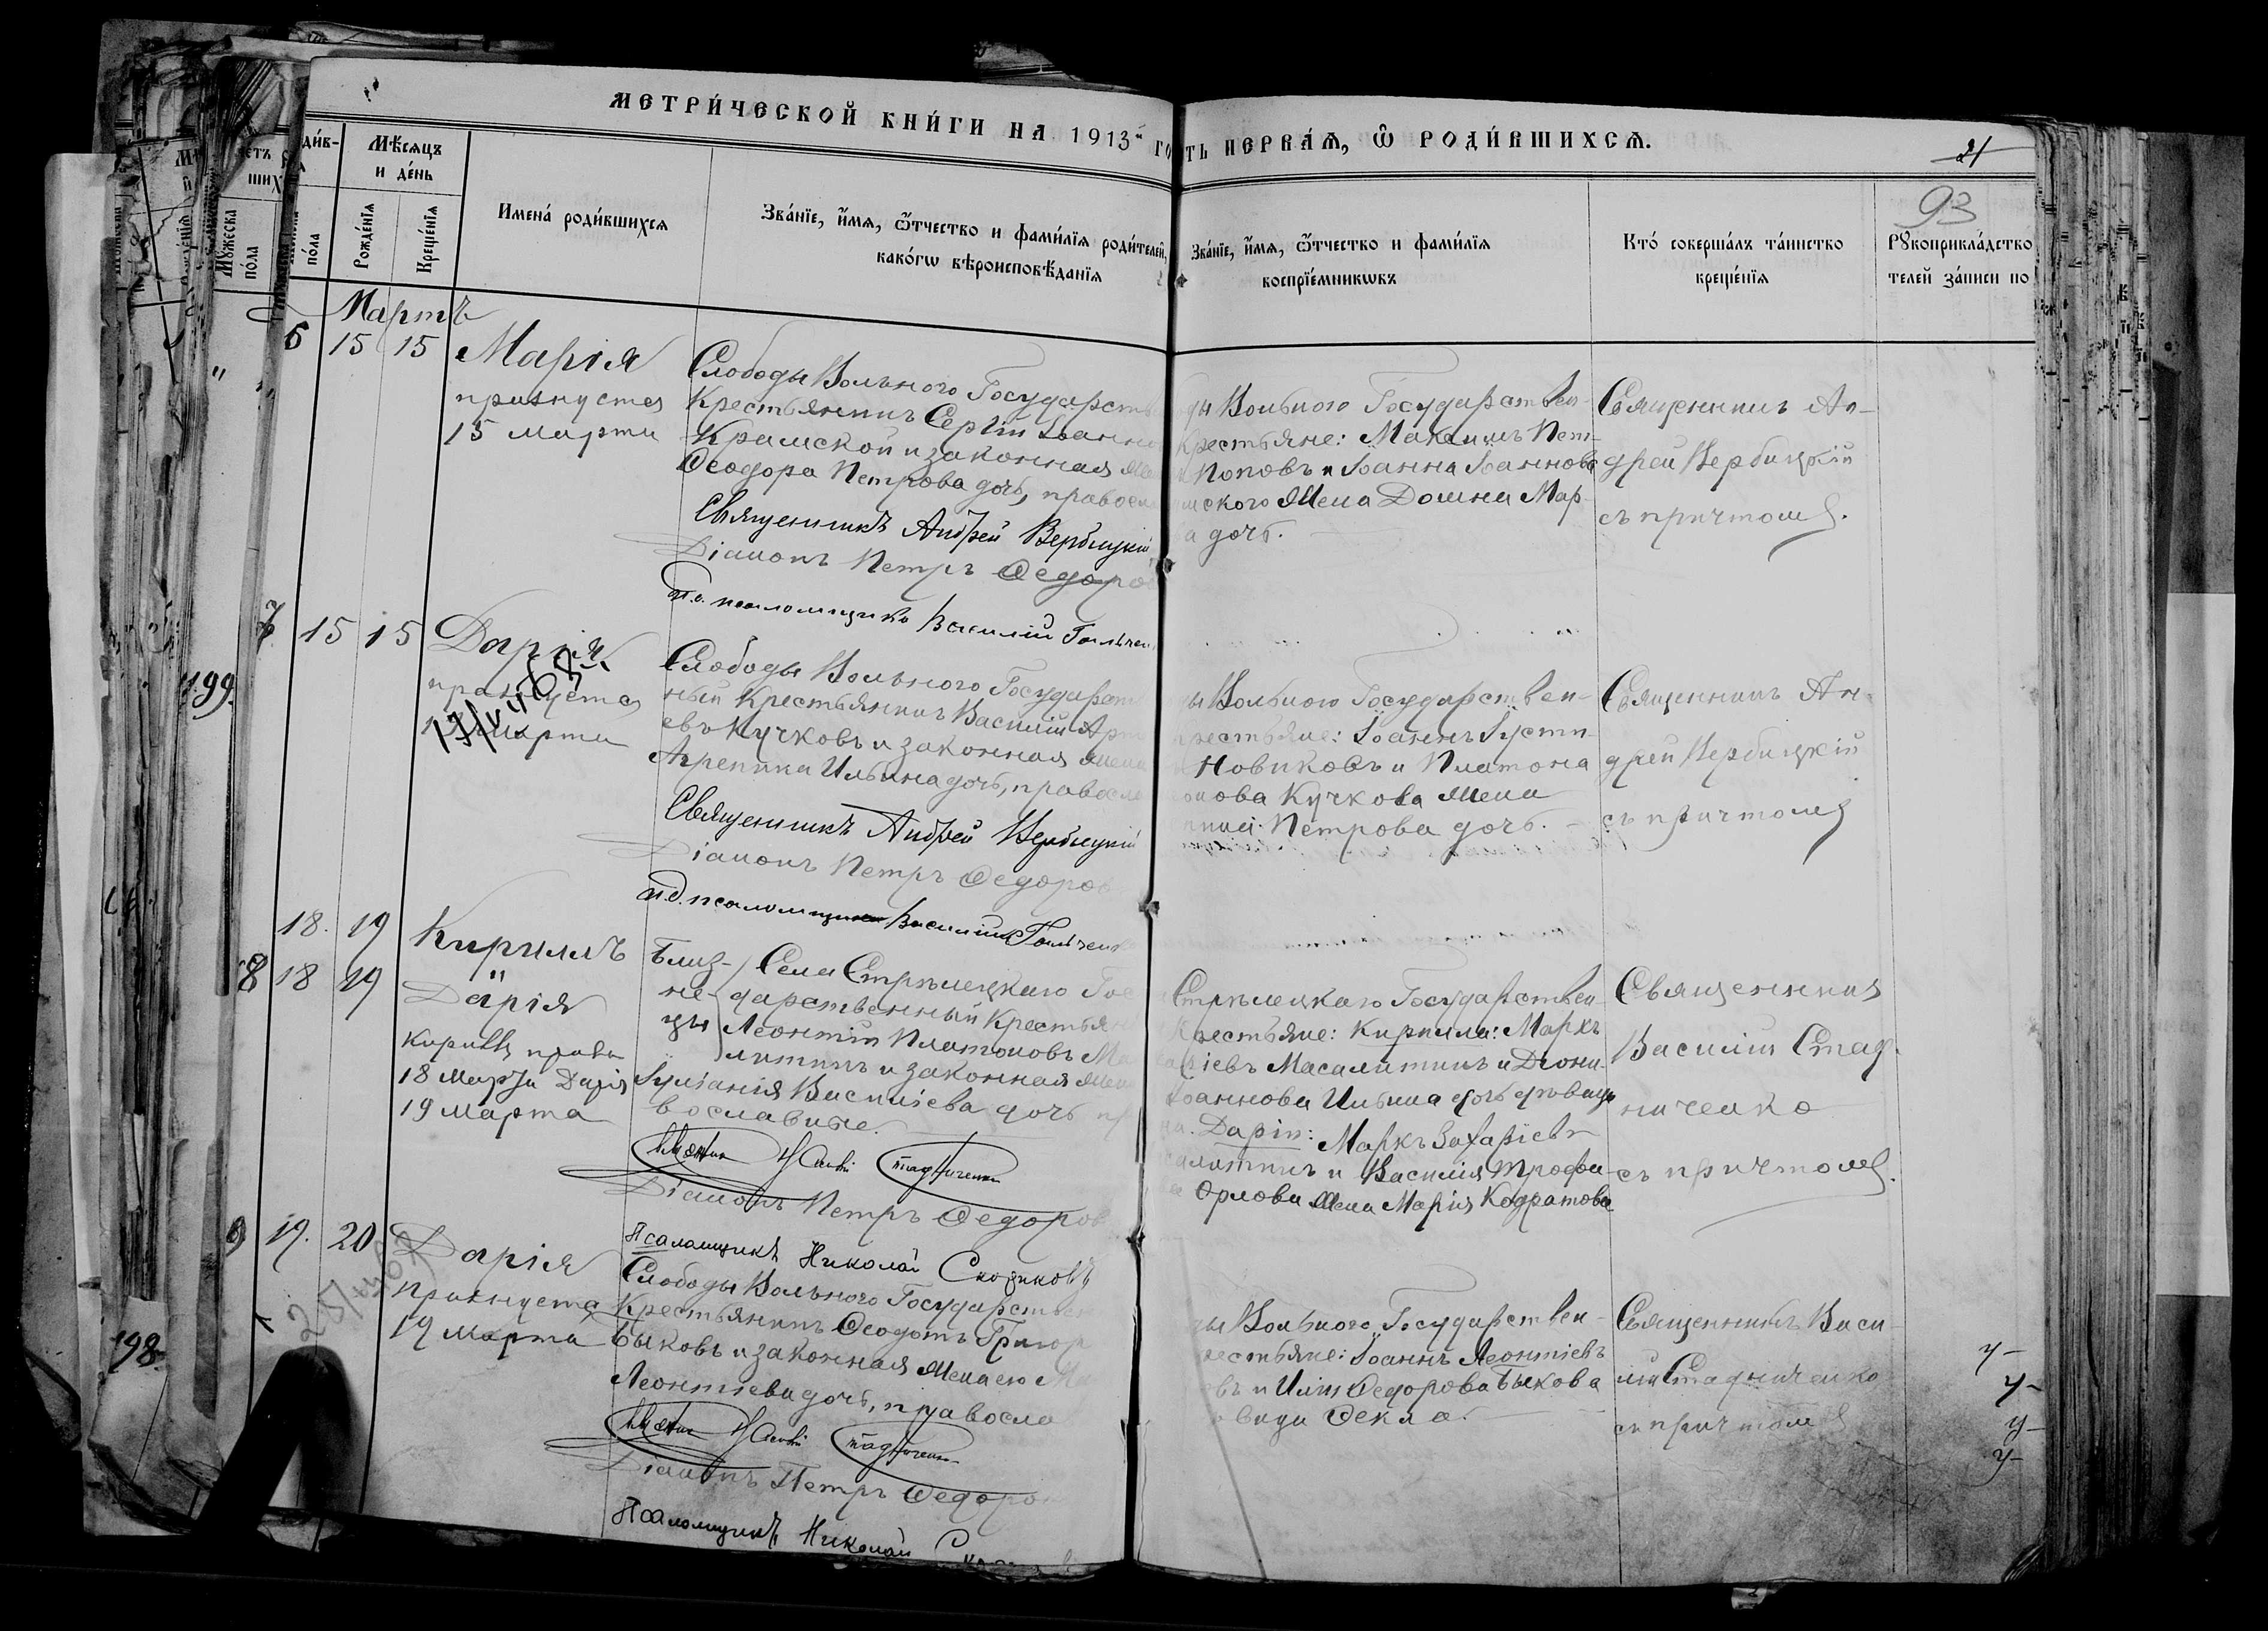 МЕТРИ́ЧЕСКОЙ КНИ́ГИ НА 1913 ГО
ТЬ ПЕРВА́Ѧ, Ѿ РОДИ́ВШИХСѦ.
21
93
Мѣсѧцъ
и де́нь
Рожде́нїѧ
Креще́нїѧ
Имена́ роди́вшихсѧ
Зва́нїе, и҆́мѧ, ѻ҆́тчество и фами́лїѧ роди́телей,
како́гѡ вѣроисповѣ́данїѧ
Зва́нїе, и҆́мѧ, ѻ҆́тчество и фами́лїѧ
воспрїе́мникѡвъ
Кто́ соверша́лъ та́инство
креще́нїѧ
Рꙋкоприкла́дство
телей за́писи по
Мартъ
6 15 15 Марія
празнуетъ
15 марта
Слободы Вольного Государств
Крестьянинъ Сергій Іоанно
Крамской и законная же
Ѳеодора Петрова дочь, правосл
Священникъ Андрей Вербицкій
Діаконъ Петръ Ѳедоров
и.о. псаломщика Василій Гальчен
ды Вольного Государствен-
Крестьяне: Максимъ Пет-
Поповъ и Іоанна Іоаннова
мского Жена Домна Мар-
а дочь.
Священникъ Ан-
дрей Вербицкій
съ причтомъ.
7 15 15 Дарія
празнуетъ
марта
199.
Слободы Вольного Государст
ный Крестьянинъ Василій Арт
евъ Кучковъ и законная жена
Агрепина Ильина дочь, правосл
Священникъ Андрей Вербицкій
Діаконъ Петръ Ѳедоров
и.д. псаломщика Василій Гальченк
ды Вольного Государствен-
крестьяне: Іоаннъ Іусти-
Новиковъ и Платона
онова Кучкова Жена
Петрова дочь.
Священникъ Ан-
дрей Вербицкій
съ причтомъ
18. 19 Кириллъ
8 18 19 Дарія
Кириллъ празн
18 Марта Дарія
19 Марта
Близ-
не-
цы
Села Стрѣлецкаго Гос
дарственный Крестьян
Леонтій Платоновъ Ма
литинъ и законная Жен
Іуліанія Василіева дочь пр
вославные.
Діаконъ Петръ Ѳедоров
Псаломщикъ Николай Скориковъ
Стрѣлецкаго Государствен-
Крестьяне: Кирилла: Маркъ
аріевъ Масалитинъ и Діони-
Іоаннова Ильина дочь дѣвица
Дарія: Маркъ Захаріевъ
салитинъ и Василія Трофи-
Орлова Жена Марія Кодратова
Священникъ
Василій Стад-
ниченко
съ причтомъ.
9 19. 20 Дарія
празнуетъ
19 Марта
198.
Слободы Вольного Государствен
Крестьянинъ Ѳеодотъ Григор
Быковъ и законная Жена его М
Леонтіева дочь, правосла
Діаконъ Петръ Ѳедоров
Псаломщикъ Николай
ды Вольного Государствен-
рестьяне: Іоаннъ Леонтіевъ
евъ и Иліи Ѳедорова Быкова
вица Ѳекла.
Священникъ Васи-
лій Стадниченко
съ причтомъ